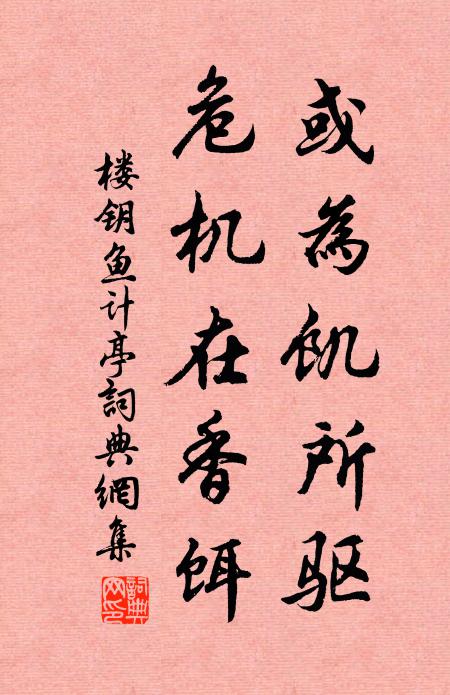 或為飢所驱
危机在香饵
楼钥鱼计亭詞典網集
詞典網印